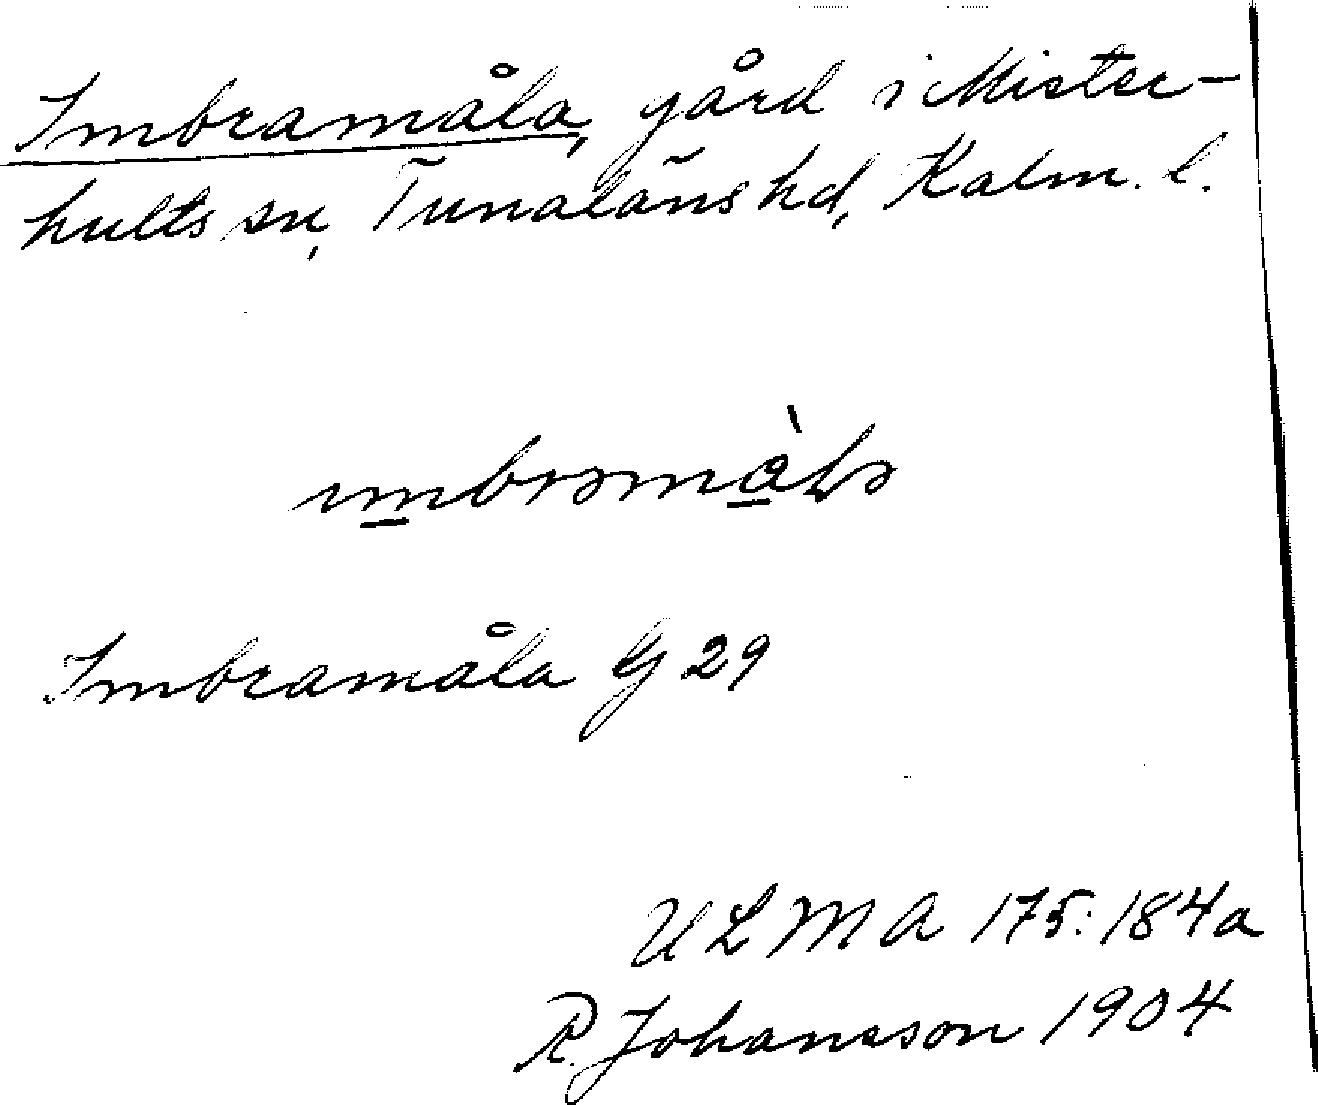 Imbramåla, gård i Mister-
hults sn, Tunaläns hd, Kalm. l.
Imbramåla G 29
ULMA 175:184a
R. Johansson 1904